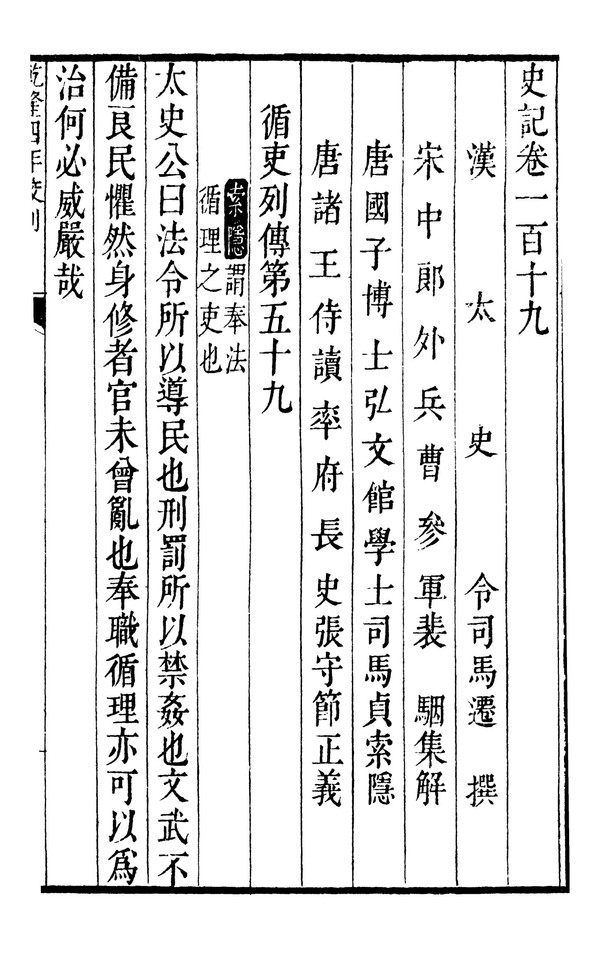 史記卷一百十九
漢太史令司馬遷撰
宋中郎外兵曹參軍裴駰集解
唐國子博士弘文館學士司馬貞索隱
唐諸王侍讀率府長史張守節正義
循吏列傳第五十九
索隱謂奉法
循理之吏也
太史公曰法令所以導民也刑罰所以禁姦也文武不
備良民懼然身修者官未曾亂也奉職循理亦可以爲
治何必威嚴哉
乾隆四年校刊